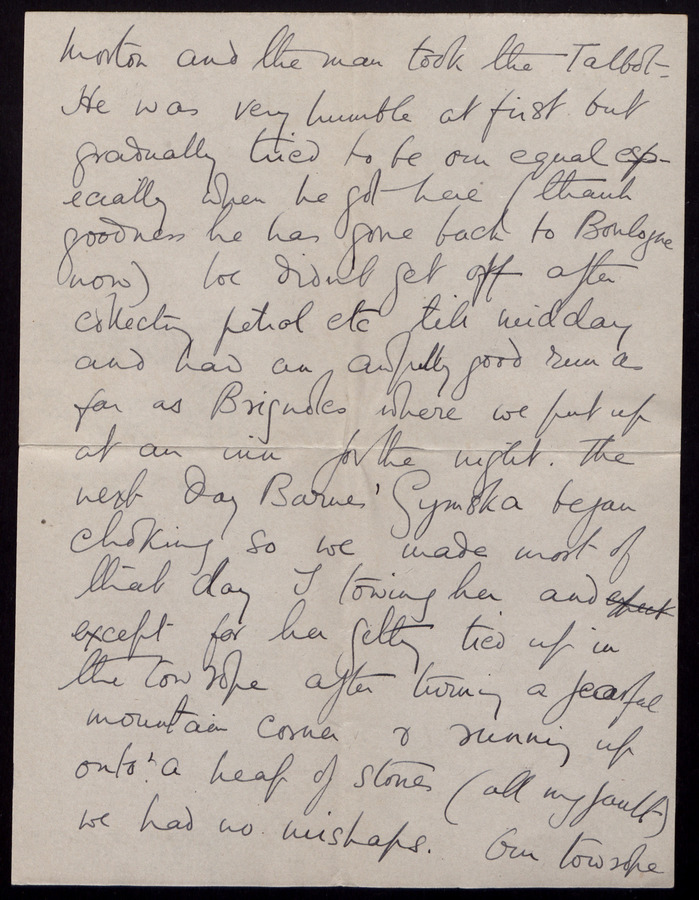 Morton and the man took the Talbot -
He was very humble at first but
gradually tried to be our equal esp-
ecially when he got here (thank
goodness he has gone back to Boulogne
now) We didn't get off after
collecting petrol etc till midday
and had an awfully good run as
far as Brignoles where we put up
at an inn for the night. The
next day Barnes' Gymska began
choking so we made most of
that day I towing her and
except for her getting tied up in
the tow rope after turning a fearful
mountain corner & running up
onto a heap of stones (all my fault)
we had no mishaps. Our tow rope